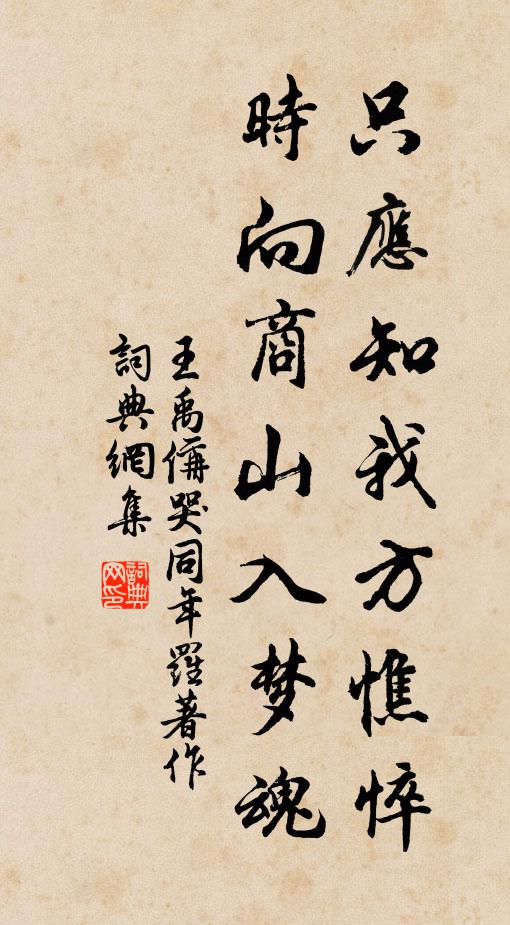 只應知我方憔悴
時向商山入梦魂
王禹偁哭同年羅著作
詞典網集
詞典
网印